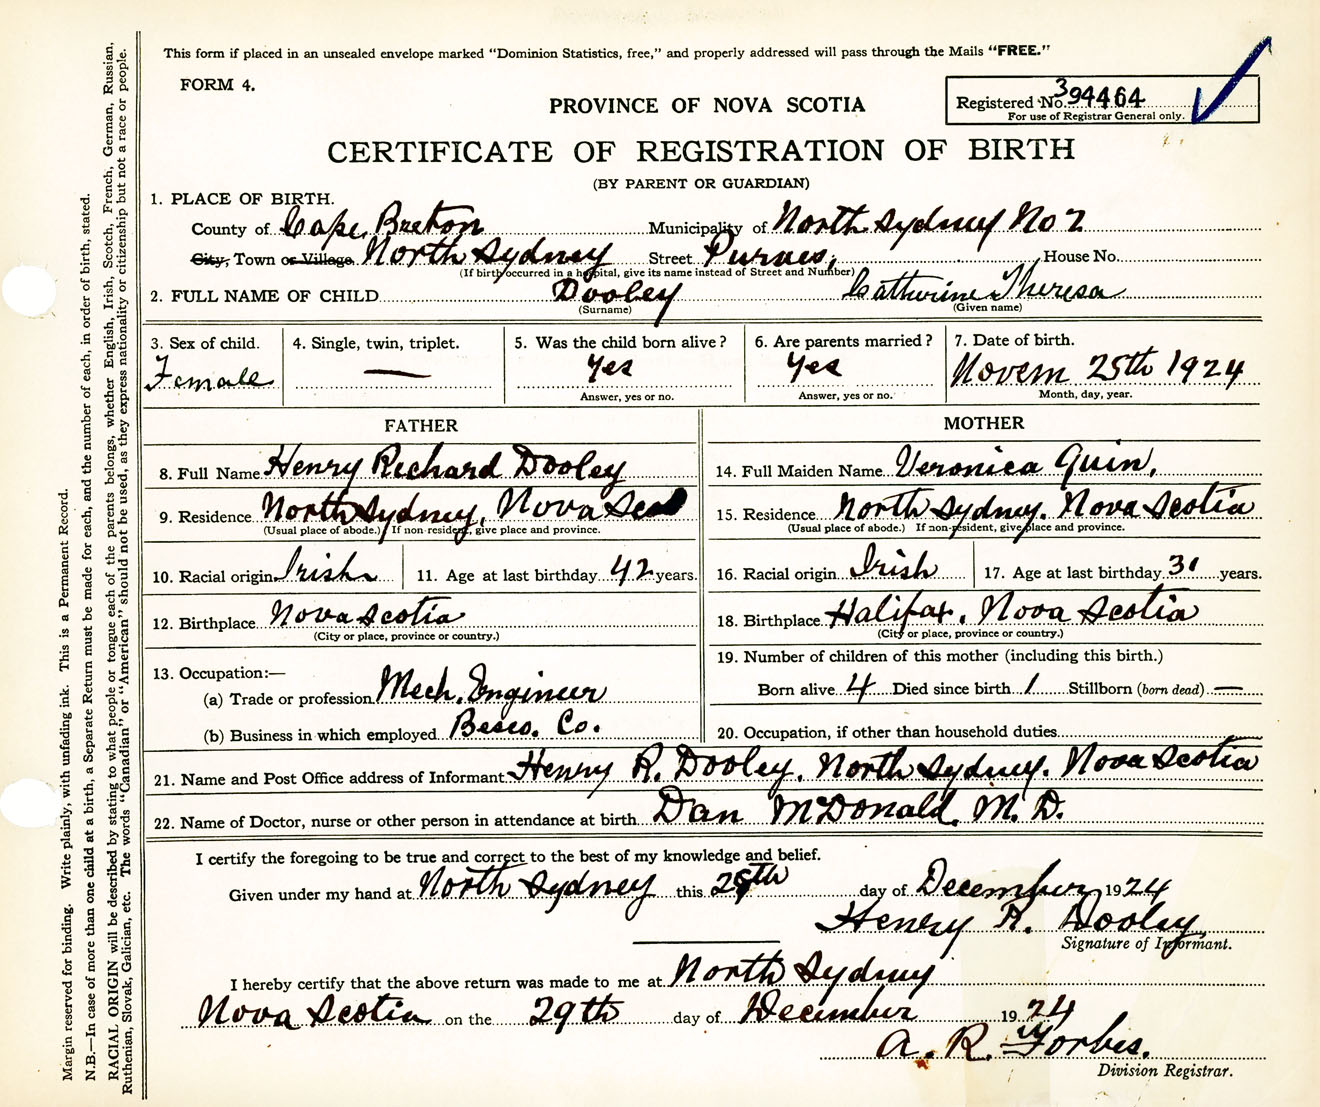 This form if placed in an unsealed envelope marked "Dominion Statistics, free," and properly addressed will pass through the Mails "FREE."
FORM 4.
Registered No. 394464
For use of Registrar General only.
PROVINCE OF NOVA SCOTIA
CERTIFICATE OF REGISTRATION OF BIRTH
(BY PARENT OR GUARDIAN)
1. PLACE OF BIRTH.
County of Cape Breton Municipality of North Sydney No 2
City, Town or Village North Sydney Street Purves, House No.
(If birth occurred in a hospital, give its name instead of Street and Number)
2. FULL NAME OF CHILD Dooley Catherine Theresa
(Surname) (Given name)
3. Sex of child. 4. Single, twin, triplet. 5. Was the child born alive? 6. Are parents married? 7. Date of birth.
Female — Yes Yes Novem 25th 1924
Answer, yes or no. Answer, yes or no. Month, day, year.
FATHER MOTHER
8. Full Name Henry Richard Dooley 14. Full Maiden Name Veronica Quin.
9. Residence North Sydney, Nova Sco 15. Residence North Sydney. Nova Scotia
(Usual place of abode.) If non-resident, give place and province. (Usual place of abode.) If non-resident, give place and province.
10. Racial origin Irish 11. Age at last birthday 42 years. 16. Racial origin Irish 17. Age at last birthday 31 years.
12. Birthplace Nova Scotia 18. Birthplace Halifax, Nova Scotia
(City or place, province or country.) (City or place, province or country.)
13. Occupation:— 19. Number of children of this mother (including this birth.)
(a) Trade or profession Mech. Engineer Born alive 4 Died since birth 1 Stillborn (born dead) —
(b) Business in which employed Besco. Co. 20. Occupation, if other than household duties
21. Name and Post Office address of Informant Henry R. Dooley. North Sydney. Nova Scotia
22. Name of Doctor, nurse or other person in attendance at birth Dan McDonald, M.D.
I certify the foregoing to be true and correct to the best of my knowledge and belief.
Given under my hand at North Sydney this 28th day of December 1924
Henry R. Dooley,
Signature of Informant.
I hereby certify that the above return was made to me at North Sydney
Nova Scotia on the 29th day of December 1924
A. R. Forbes.
Division Registrar.
Margin reserved for binding. Write plainly, with unfading ink. This is a Permanent Record.
N.B.—In case of more than one child at a birth, a Separate Return must be made for each, and the number of each, in order of birth, stated.
RACIAL ORIGIN will be described by stating to what people or tongue each of the parents belongs, whether English, Irish, Scotch, French, German, Russian,
Ruthenian, Slovak, Galician, etc. The words "Canadian" or "American" should not be used, as they express nationality or citizenship but not a race or people.